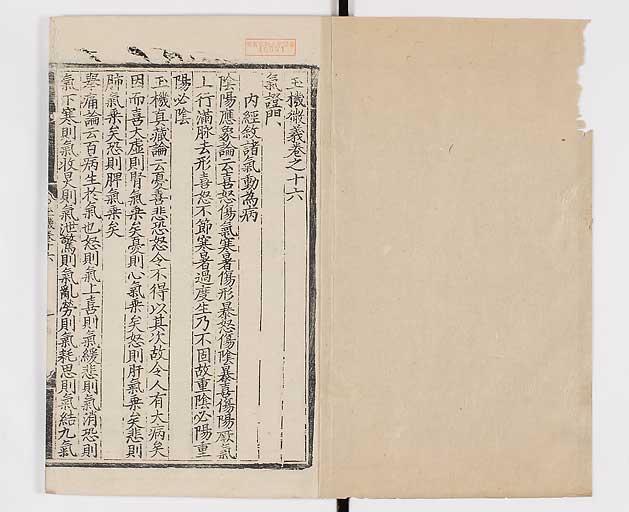 玉機微義卷之十六
氣證門
内經敘諸氣動為病
陰陽應象論云喜怒傷氣寒暑傷形暴怒傷陰暴喜傷陽厥氣
上行滿脉去形喜怒不節寒暑過度生乃不固故重陰必陽重
陽必陰
玉機真藏論云憂喜悲恐怒令不得以其次故令人有大病矣
因而喜大虛則腎氣乘矣憂則心氣乘矣怒則肝氣乘矣悲則
肺氣乘矣恐則脾氣乘矣
舉痛論云百病生於氣也怒則氣上喜則氣緩悲則氣消恐則
氣下寒則氣收炅則氣泄驚則氣亂勞則氣耗思則氣結九氣